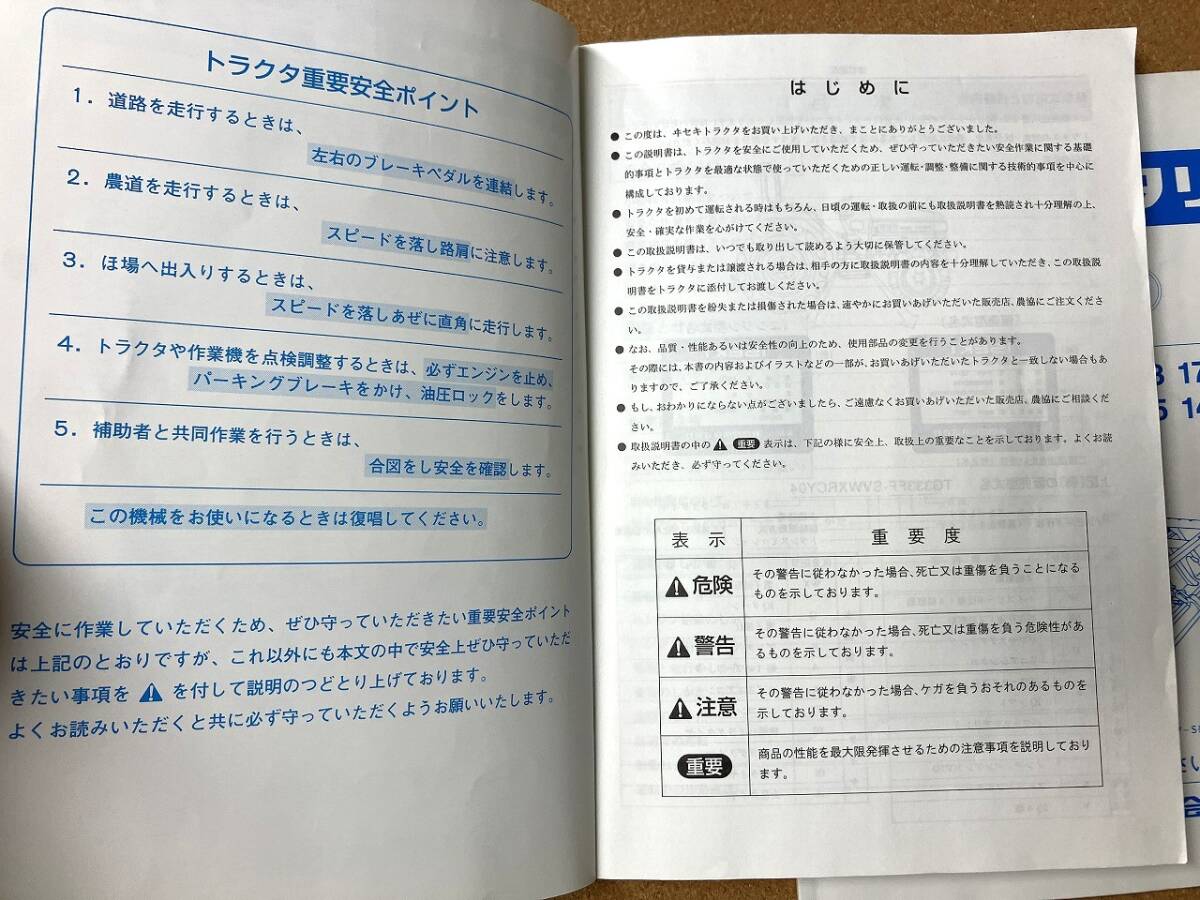 トラクタ重要安全ポイント
1. 道路を走行するときは、
左右のブレーキペダルを連結します。
2. 農道を走行するときは、
スピードを落し路肩に注意します。
3. ほ場へ出入りするときは、
スピードを落しあぜに直角に走行します。
4. トラクタや作業機を点検調整するときは、必ずエンジンを止め、
パーキングブレーキをかけ、油圧ロックをします。
5. 補助者と共同作業を行うときは、
合図をし安全を確認します。
この機械をお使いになるときは復唱してください。
安全に作業していただくため、ぜひ守っていただきたい重要安全ポイント
は上記のとおりですが、これ以外にも本文の中で安全上ぜひ守っていただ
きたい事項を ⚠ を付して説明のつどとり上げております。
よくお読みいただくと共に必ず守っていただくようお願いいたします。
はじめに
● この度は、ヰセキトラクタをお買い上げいただき、まことにありがとうございました。
● この説明書は、トラクタを安全にご使用していただくため、ぜひ守っていただきたい安全作業に関する基礎
的事項とトラクタを最適な状態で使っていただくための正しい運転・調整・整備に関する技術的事項を中心に
構成しております。
● トラクタを初めて運転される時はもちろん、日頃の運転・取扱の前にも取扱説明書を熟読され十分理解の上、
安全・確実な作業を心がけてください。
● この取扱説明書は、いつでも取り出して読めるよう大切に保管してください。
● トラクタを貸与または譲渡される場合は、相手の方に取扱説明書の内容を十分理解していただき、この取扱説
明書をトラクタに添付してお渡しください。
● この取扱説明書を紛失または損傷された場合は、速やかにお買いあげいただいた販売店、農協にご注文くださ
い。
● なお、品質・性能あるいは安全性の向上のため、使用部品の変更を行うことがあります。
その際には、本書の内容およびイラストなどの一部が、お買いあげいただいたトラクタと一致しない場合もあ
りますので、ご了承ください。
● もし、おわかりにならない点がございましたら、ご遠慮なくお買いあげいただいた販売店、農協にご相談くだ
さい。
● 取扱説明書の中の ⚠ 重要 表示は、下記の様に安全上、取扱上の重要なことを示しております。よくお読
みいただき、必ず守ってください。
表示 重要度
⚠危険 その警告に従わなかった場合、死亡又は重傷を負うことになる
ものを示しております。
⚠警告 その警告に従わなかった場合、死亡又は重傷を負う危険性があ
るものを示しております。
⚠注意 その警告に従わなかった場合、ケガを負うおそれのあるものを
示しております。
重要 商品の性能を最大限発揮させるための注意事項を説明しており
ます。
17
5 14
さい